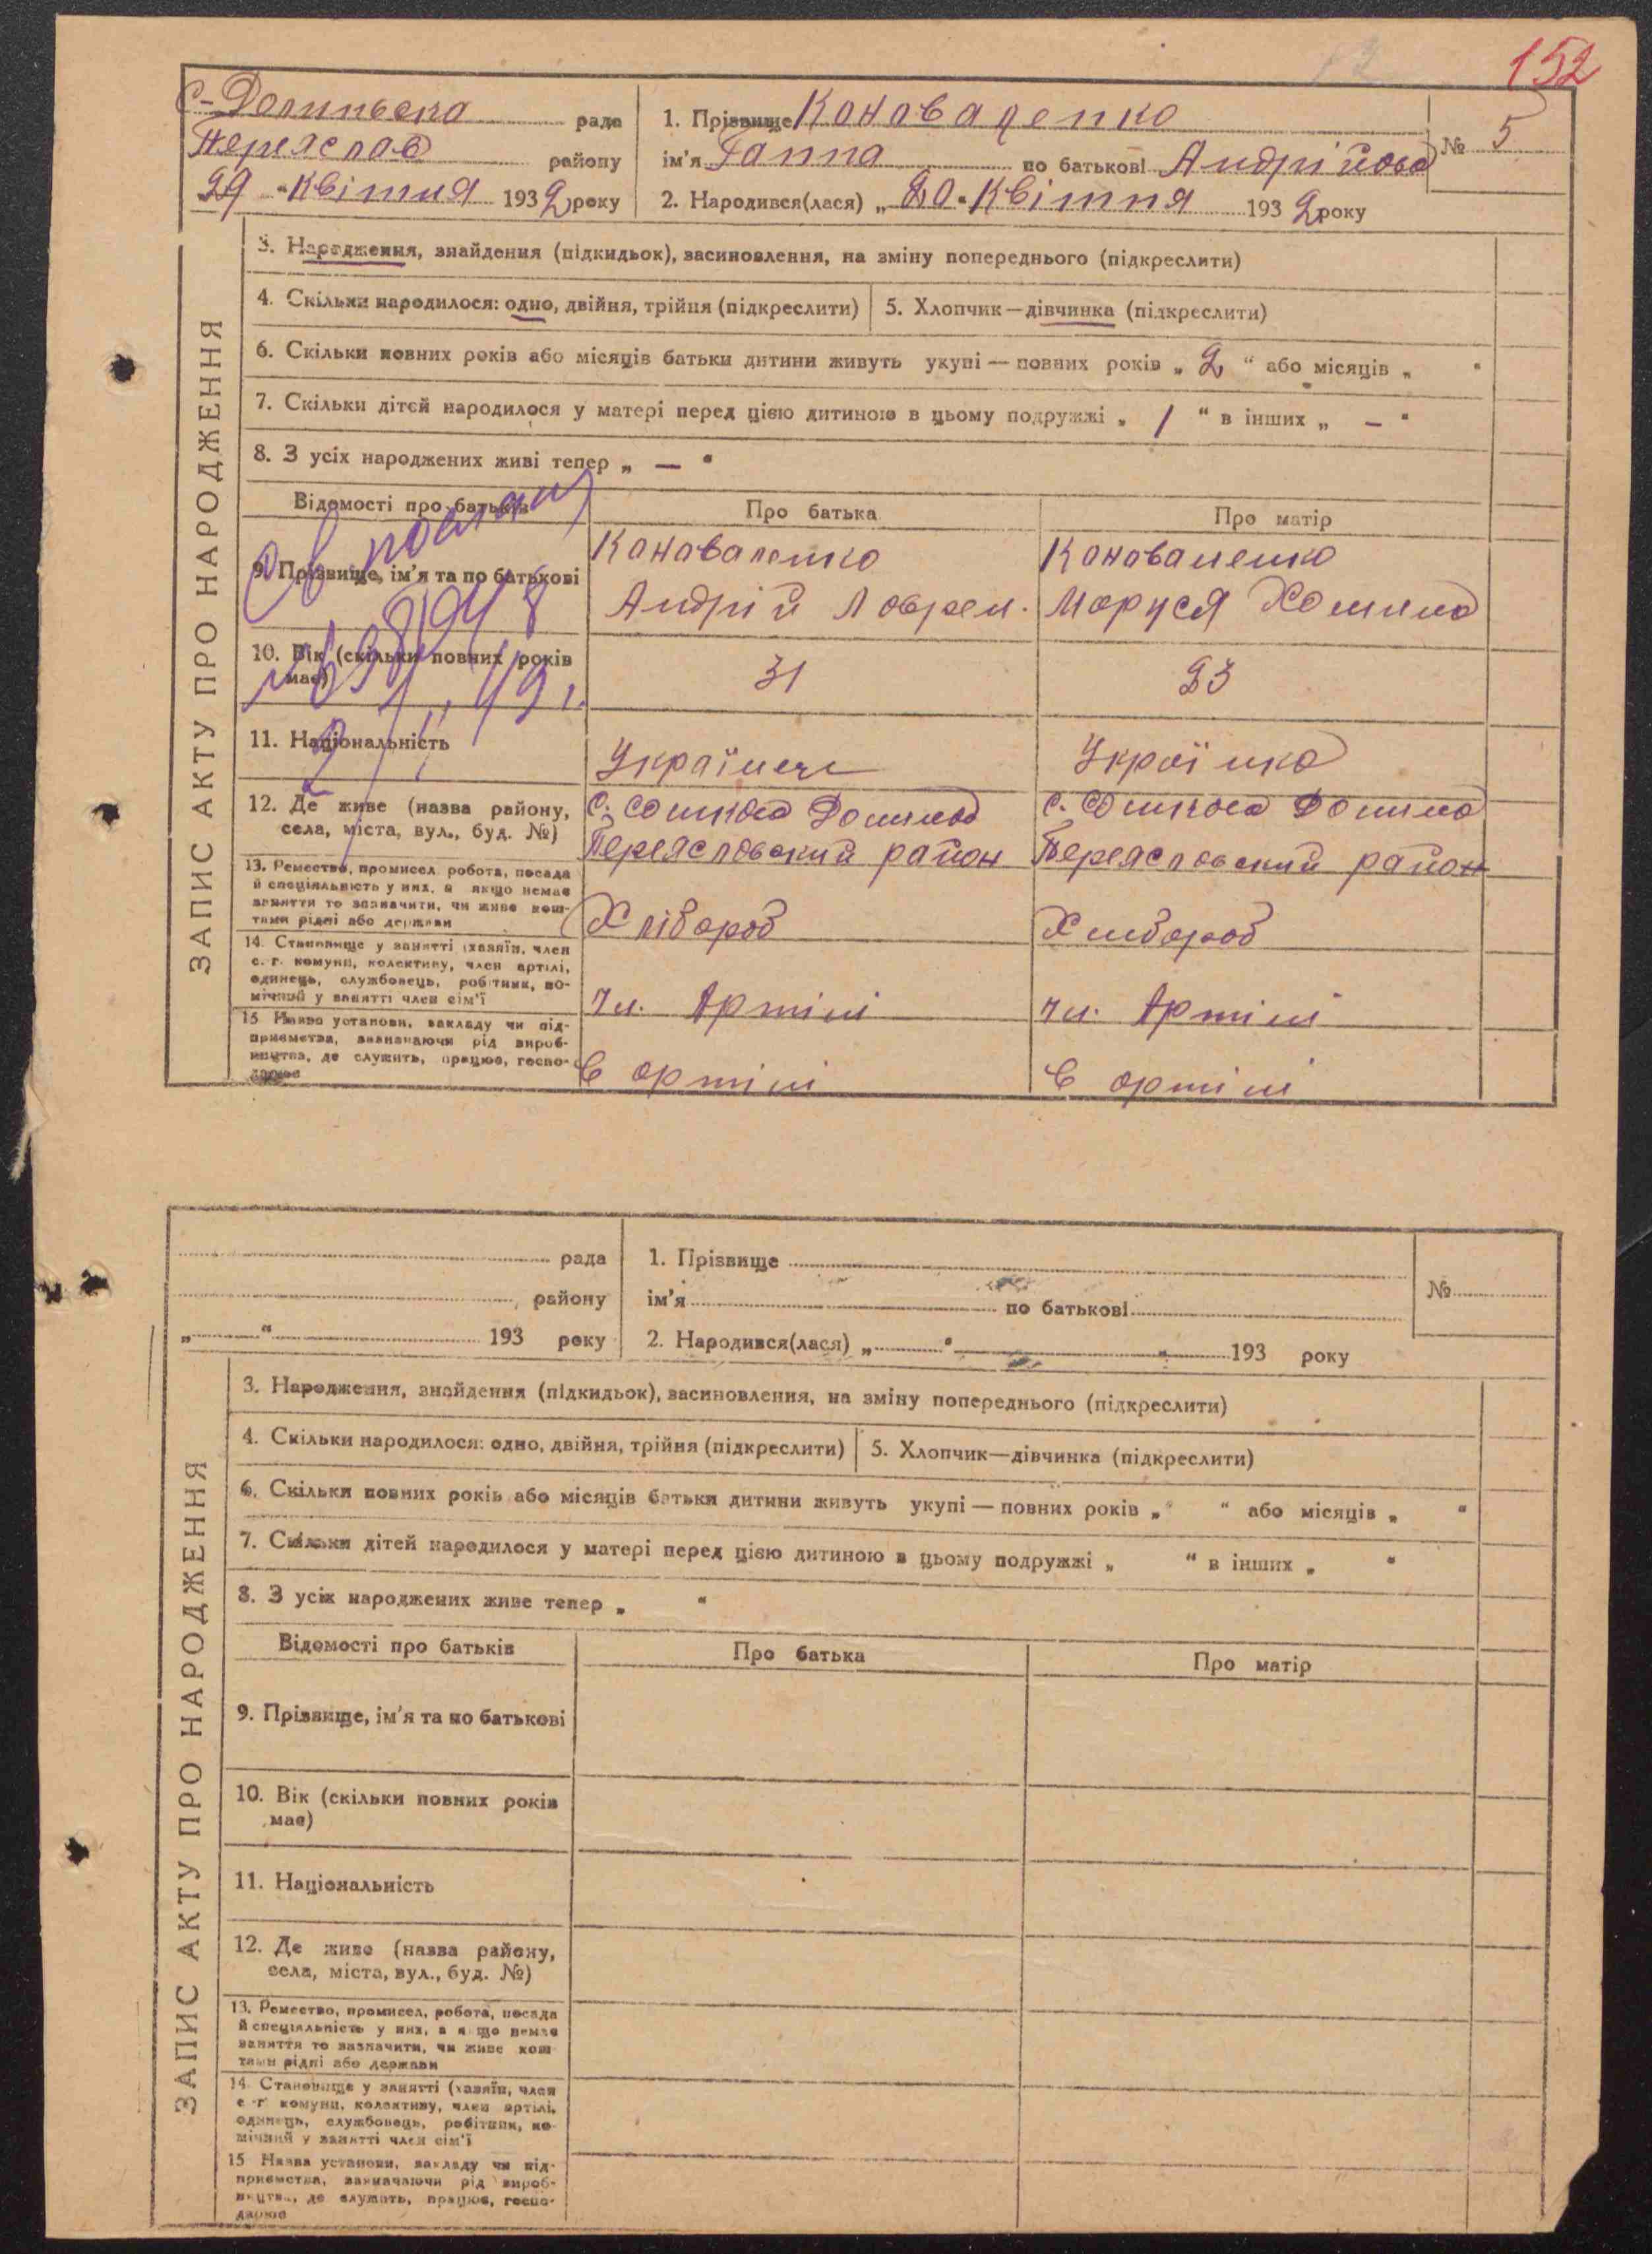 152
С-Долинська рада
Переяслав району
29 „ Квітня 1932 року
1. Прізвище Коноваленко
ім'я Ганна по батькові Андрійова
№ 5
2. Народився(лася) „ 20 " Квітня 1932 року
ЗАПИС АКТУ ПРО НАРОДЖЕННЯ
3. Народження, знайдення (підкидьок), засиновлення, на зміну попереднього (підкреслити)
4. Скільки народилося: одно, двійня, трійня (підкреслити)
5. Хлопчик—дівчинка (підкреслити)
6. Скільки повних років або місяців батьки дитини живуть укупі — повних років „ 2 “ або місяців „ “
7. Скільки дітей народилося у матері перед цією дитиною в цьому подружжі „ 1 “ в інших „ – “
8. З усіх народжених живі тепер „ — “
Відомості про батьків
Про батька
Про матір
9. Прізвище, ім'я та по батькові
Коноваленко
Андрій Лаврен.
Коноваленко
Маруся Хомина
10. Вік (скільки повних років має)
31
23
11. Національність
Українець
Українка
12. Де живе (назва району,
села, міста, вул., буд. №)
с. Сошкова Долина
Переяславський район
с. Сошкова Долина
Переяславський район
13. Ремество, промисел, робота, посада
й спеціяльність у них, а якщо немає
заняття то зазначити, чи живе кош-
тами рідні або держави
Хлібороб
Хлибороб
14. Становище у занятті (хазяїн, член
с.-г. комуни, колективу, член артілі,
одинець, службовець, робітник, по-
мічний у занятті член сім'ї
Чл. Артілі
Чл. Артілі
15 Назва установи, закладу чи під-
приємства, зазначаючи рід вироб-
ництва, де служить, працює, госпо-
дарює
в артілі
в артілі
рада
району
„ “ 193 року
1. Прізвище
ім'я по батькові
№
2. Народився(лася) „ “ 193 року
ЗАПИС АКТУ ПРО НАРОДЖЕННЯ
3. Народження, знайдення (підкидьок), засиновлення, на зміну попереднього (підкреслити)
4. Скільки народилося: одно, двійня, трійня (підкреслити)
5. Хлопчик—дівчинка (підкреслити)
6. Скільки повних років або місяців батьки дитини живуть укупі — повних років „ “ або місяців „ “
7. Скільки дітей народилося у матері перед цією дитиною в цьому подружжі „ “ в інших „ “
8. З усіх народжених живе тепер „ “
Відомості про батьків
Про батька
Про матір
9. Прізвище, ім'я та по батькові
10. Вік (скільки повних років
має)
11. Національність
12. Де живе (назва району,
села, міста, вул., буд. №)
13. Ремество, промисел, робота, посада
й спеціяльність у них, а якщо немає
заняття то зазначити, чи живе кош-
тами рідні або держави
14. Становище у занятті (хазяїн, член
с-г комуни, колективу, член артілі,
одинець, службовець, робітник, по-
мічний у занятті член сім'ї
15 Назва установи, закладу чи під-
приємства, зазначаючи рід вироб-
ництва, де служить, працює, госпо-
дарює